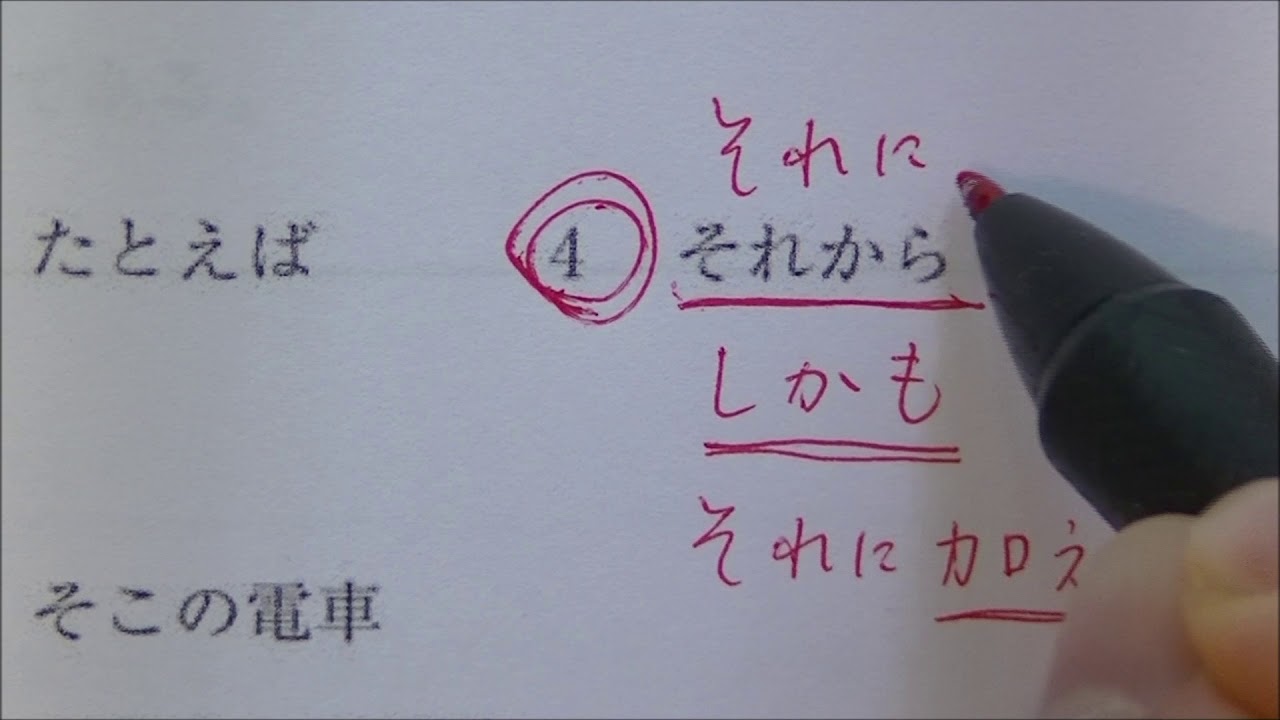 それに
たとえば 4 それから
しかも
それに加え
そこの電車